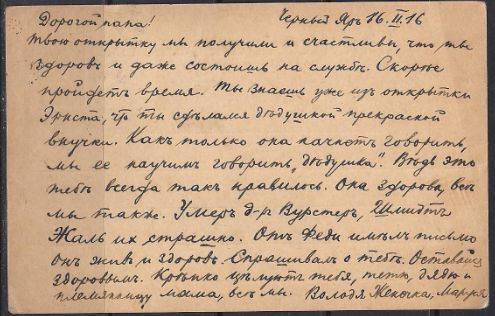 Дорогой папа! Черный Яръ 16.II.16
Твою открытку мы получили и счастливы, что ты
здоровъ и даже состоишь на службѣ. Скорѣе
пройдетъ время. Ты знаешь уже изъ открытки
Эрнста, что ты сдѣлался дѣдушкой прекрасной
внучки. Какъ только она начнетъ говорить,
мы ее научимъ говорить „дѣдушка". Вѣдь это
тебѣ всегда такъ нравилось. Она здорова, всѣ
мы также. Умеръ д-р Вурстеръ, Шмидтъ
Жаль их страшно. Отъ Феди имѣлъ письмо
онъ живъ и здоровъ. Спрашивалъ о тебѣ. Оставайся
здоровымъ. Крѣпко цѣлуютъ тебя, тетю, дядю и
племянницу мама, всѣ мы. Володя Женичка, Мария